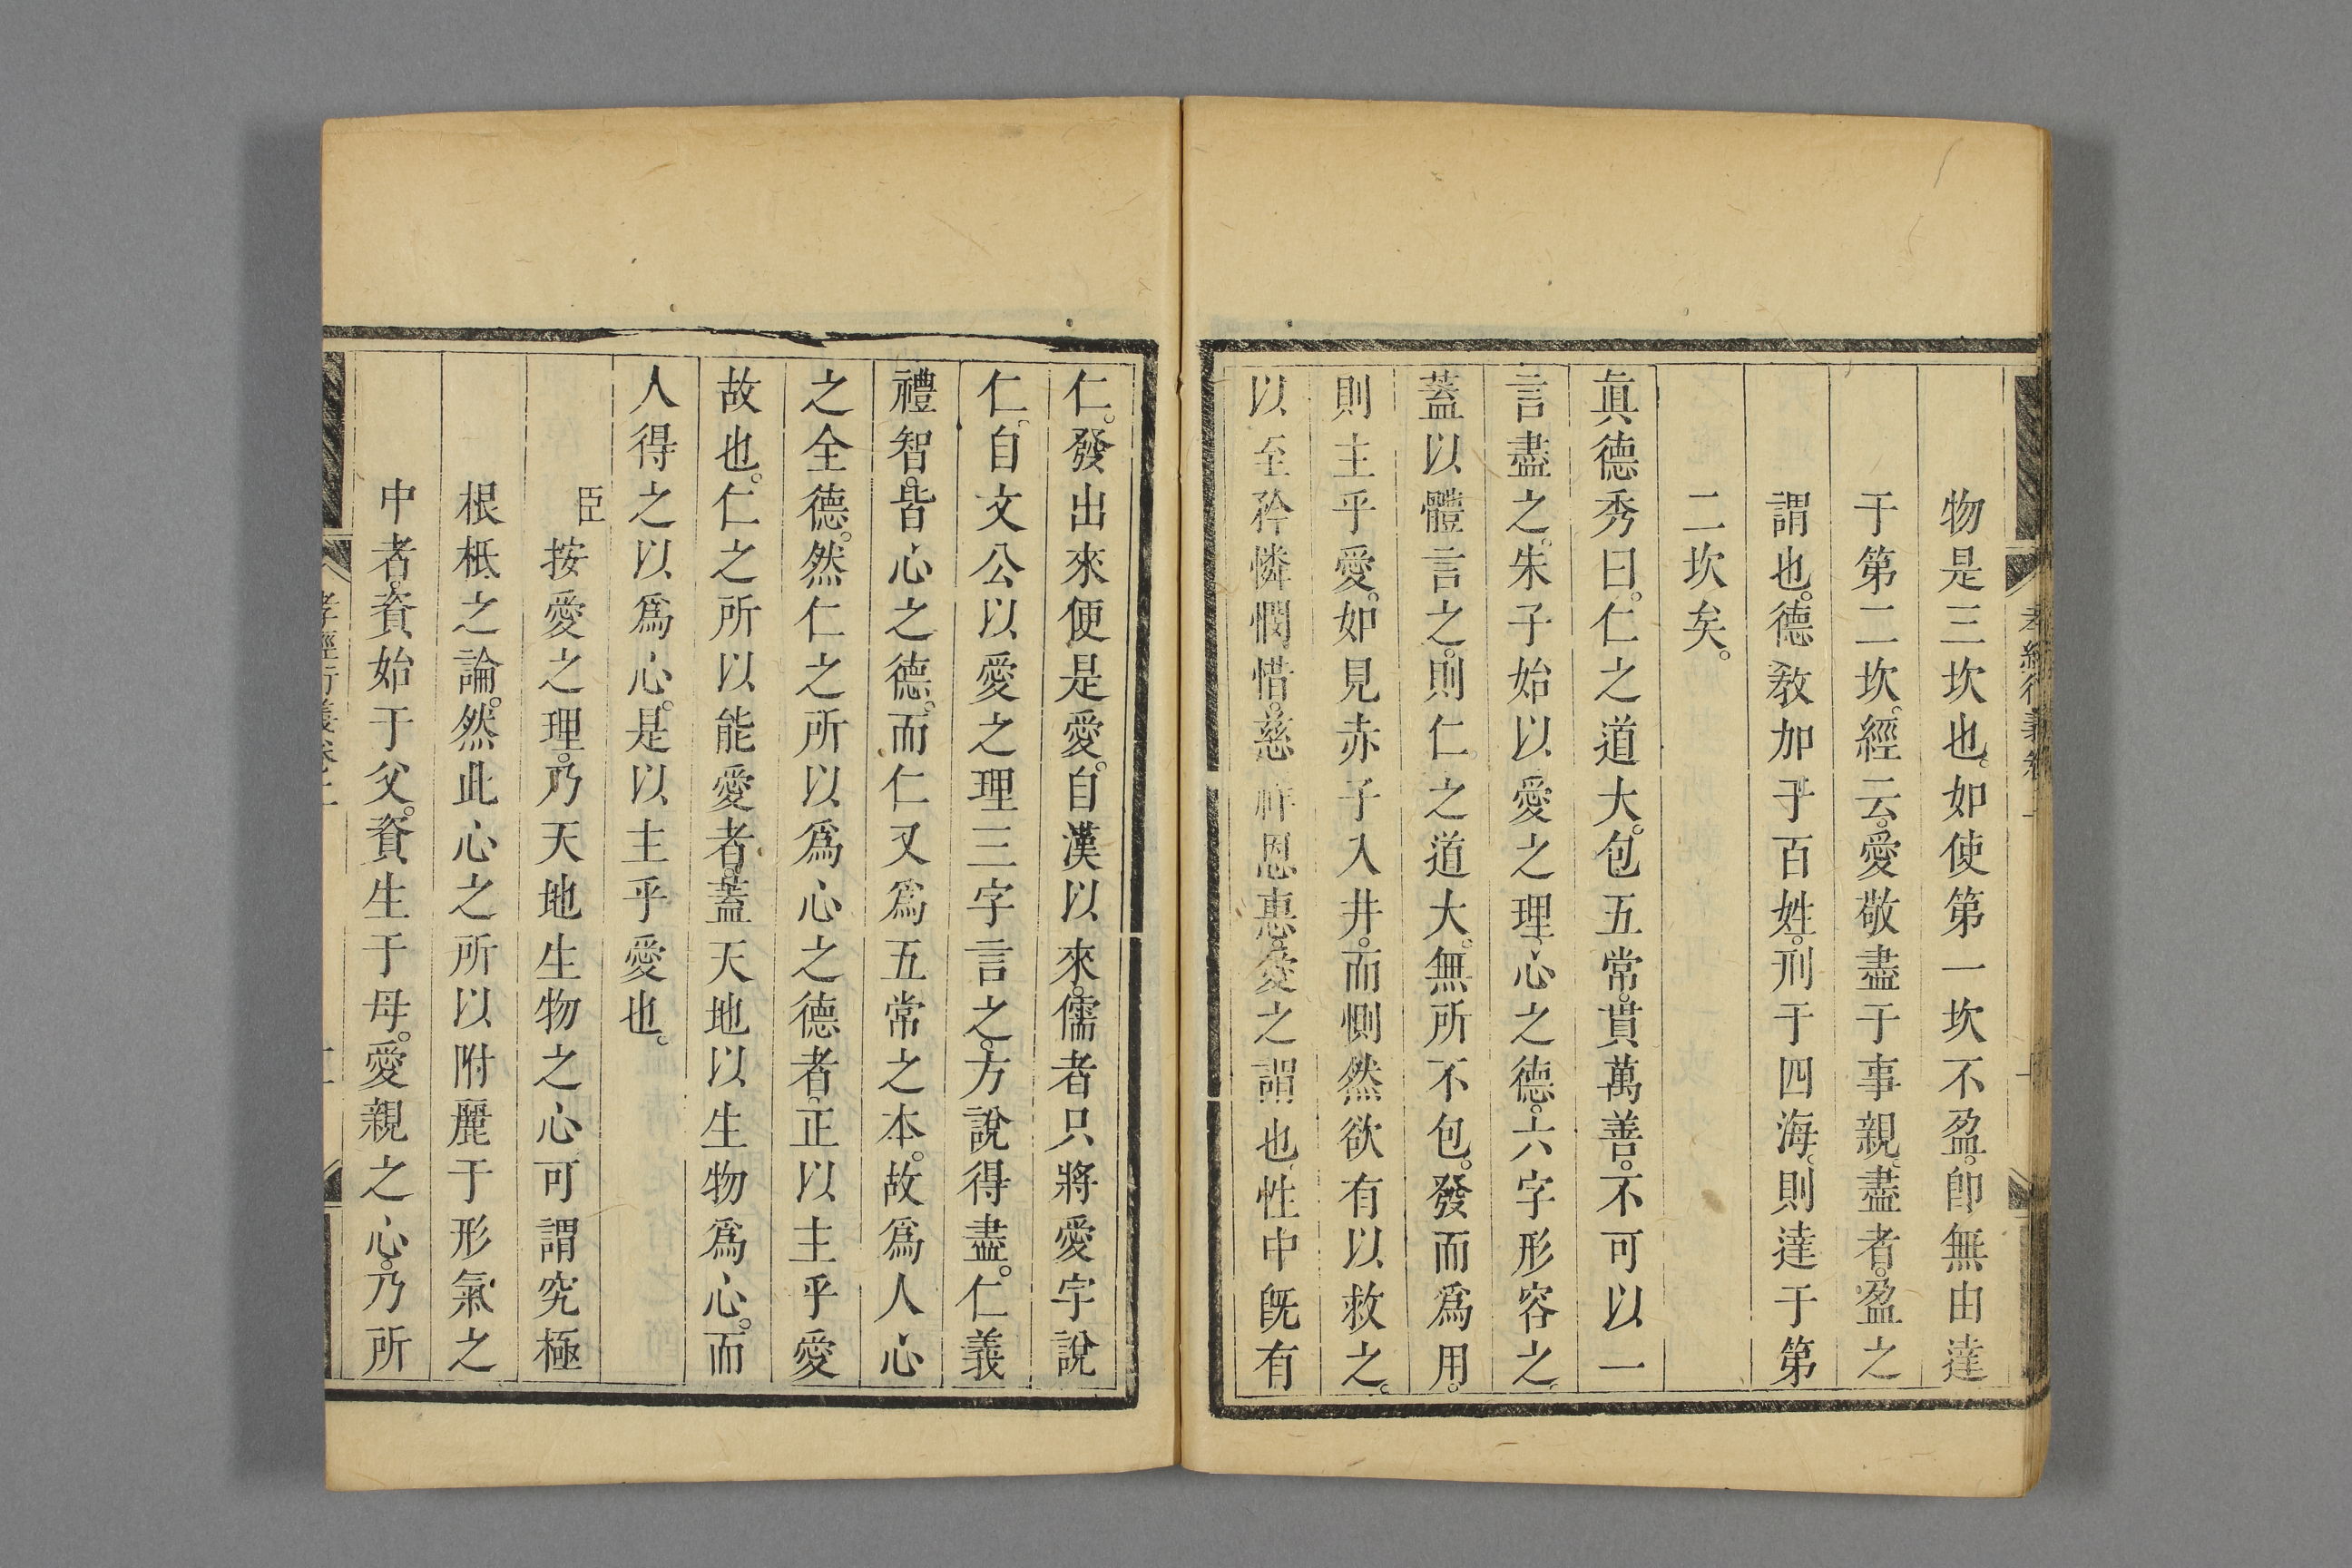 物是三坎也。如使第一坎不盈。卽無由達
于第二坎。經云。愛敬盡于事親。盡者。盈之
謂也。德敎加于百姓。刑于四海。則達于第
二坎矣。
眞德秀曰。仁之道大。包五常。貫萬善。不可以一
言盡之。朱子始以愛之理、心之德。六字形容之。
蓋以體言之。則仁之道大。無所不包。發而爲用。
則主乎愛。如見赤子入井。而惻然欲有以救之。
以至矜憐憫惜。慈祥恩惠。愛之謂也、性中旣有
仁。發出來便是愛。自漢以來。儒者只將愛字說
仁。自文公以愛之理三字言之。方說得盡。仁義
禮智。皆心之德。而仁又爲五常之本。故爲人心
之全德。然仁之所以爲心之德者。正以主乎愛
故也。仁之所以能愛者。蓋天地以生物爲心。而
人得之以爲心。是以主乎愛也。
臣按愛之理。乃天地生物之心可謂究極
根柢之論。然此心之所以附麗于形氣之
中者。資始于父。資生于母。愛親之心。乃所
孝經衍義卷